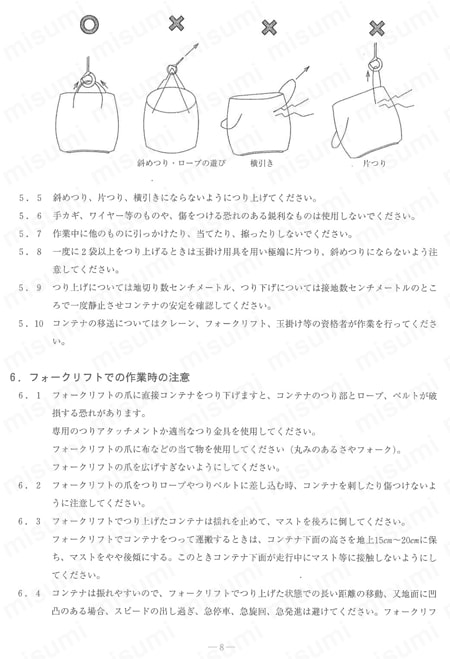 斜めつり・ロープの遊び 横引き 片つり
5．5 斜めつり、片つり、横引きにならないようにつり上げてください。
5．6 手カギ、ワイヤー等のものや、傷をつける恐れのある鋭利なものは使用しないでください。
5．7 作業中に他のものに引っかけたり、当てたり、擦ったりしないでください。
5．8 一度に2袋以上をつり上げるときは玉掛け用具を用い極端に片つり、斜めつりにならないよう注
意してください。
5．9 つり上げについては地切り数センチメートル、つり下げについては接地数センチメートルのとこ
ろで一度静止させコンテナの安定を確認してください。
5．10 コンテナの移送についてはクレーン、フォークリフト、玉掛け等の資格者が作業を行ってくださ
い。
6．フォークリフトでの作業時の注意
6．1 フォークリフトの爪に直接コンテナをつり下げますと、コンテナのつり部とロープ、ベルトが破
損する恐れがあります。
専用のつりアタッチメントか適当なつり金具を使用してください。
フォークリフトの爪に布などの当て物を使用してください（丸みのあるさやフォーク）。
フォークリフトの爪を広げすぎないようにしてください。
6．2 フォークリフトの爪をつりロープやつりベルトに差し込む時、コンテナを刺したり傷つけないよ
うに注意してください。
6．3 フォークリフトでつり上げたコンテナは揺れを止めて、マストを後ろに倒してください。
フォークリフトでコンテナをつって運搬するときは、コンテナ下面の高さを地上15cm～20cmに保
ち、マストをやや後傾にする。このときコンテナ下面が走行中にマスト等に接触しないようにし
てください。
6．4 コンテナは振れやすいので、フォークリフトでつり上げた状態での長い距離の移動、又地面に凹
凸のある場合、スピードの出し過ぎ、急停車、急旋回、急発進は避けてください。フォークリフ
―8―
misumi